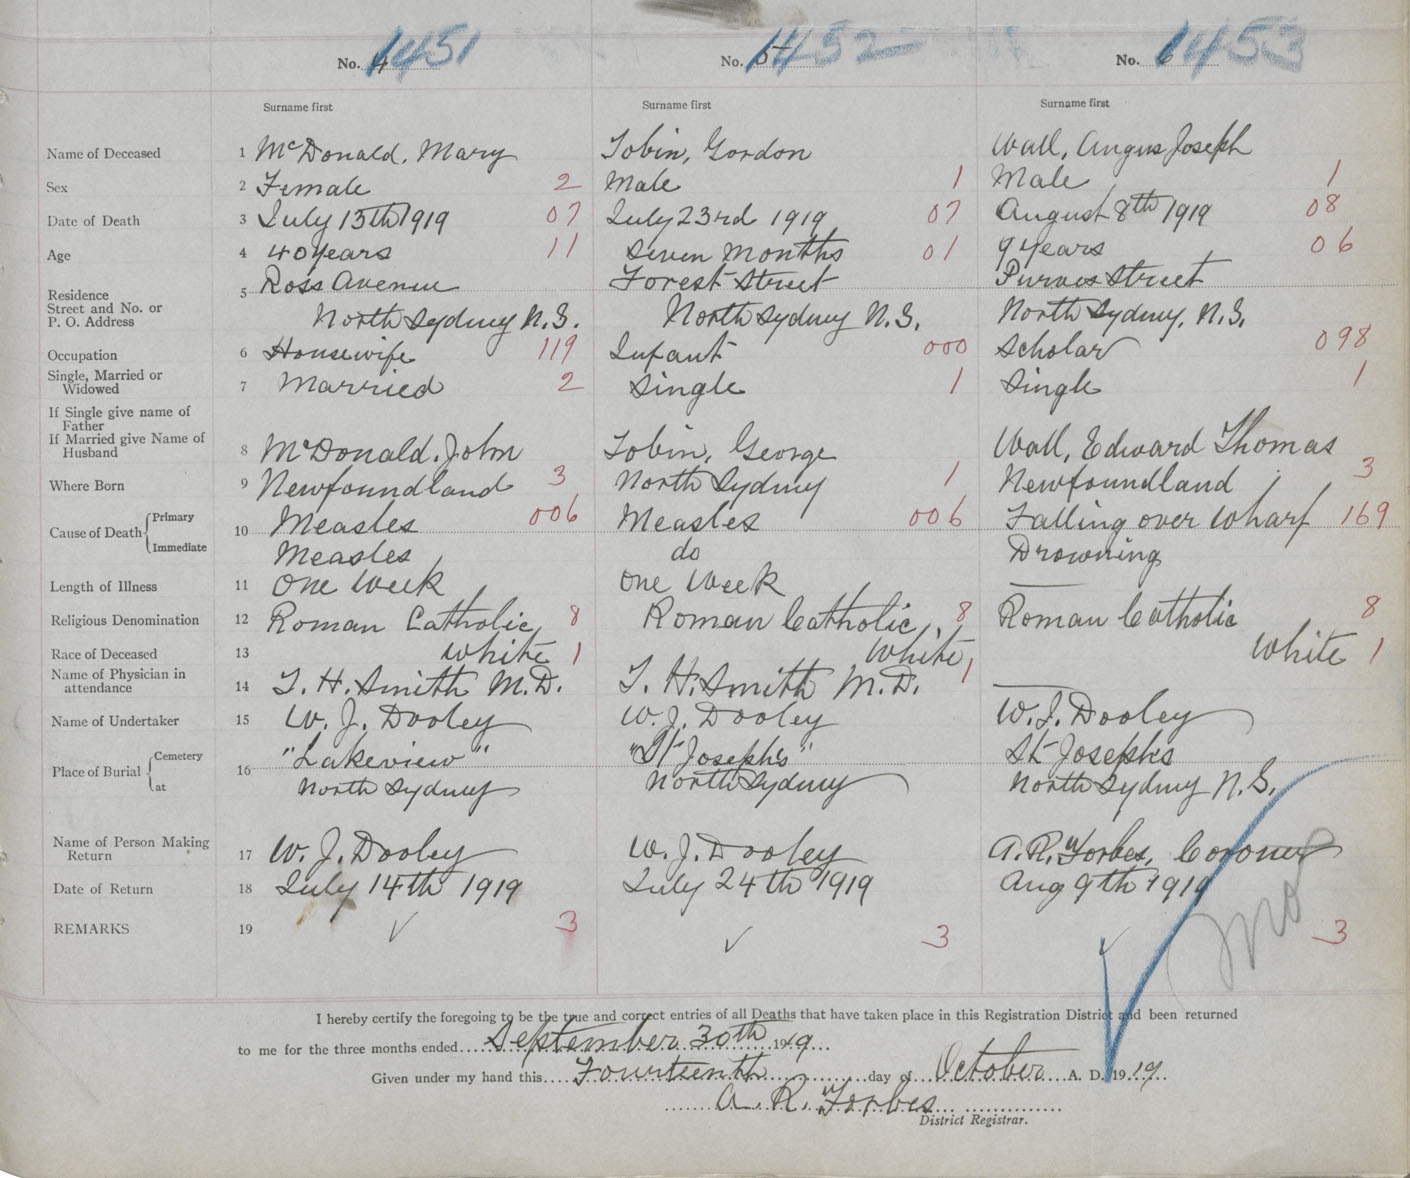 No. 4 1451 No. 5 1452 No. 6 1453
Surname first Surname first Surname first
Name of Deceased 1 McDonald, Mary Tobin, Gordon Wall, Angus Joseph
Sex 2 Female 2 Male 1 Male 1
Date of Death 3 July 13th 1919 07 July 23rd 1919 07 August 8th 1919 08
Age 4 40 years 11 Seven Months 01 9 years 06
Residence Street and No. or P. O. Address 5 Ross Avenue Forest Street Purves Street
North Sydney N.S. North Sydney N.S. North Sydney, N.S.
Occupation 6 Housewife 119 Infant 000 Scholar 098
Single, Married or Widowed 7 Married 2 Single 1 Single 1
If Single give name of Father
If Married give Name of Husband 8 McDonald, John Tobin, George Wall, Edward Thomas
Where Born 9 Newfoundland 3 North Sydney 1 Newfoundland 3
Cause of Death Primary 10 Measles 006 Measles 006 Falling over Wharf 169
Immediate Measles do Drowning
Length of Illness 11 One Week One Week
Religious Denomination 12 Roman Catholic 8 Roman Catholic 8 Roman Catholic 8
Race of Deceased 13 White 1 White 1 White 1
Name of Physician in attendance 14 T. H. Smith M.D. T. H. Smith M.D.
Name of Undertaker 15 W. J. Dooley W. J. Dooley W. J. Dooley
Place of Burial Cemetery 16 "Lakeview" "St Joseph's" St Joseph's
at North Sydney North Sydney North Sydney N.S.
Name of Person Making Return 17 W. J. Dooley W. J. Dooley A. R. Forbes, Coroner
Date of Return 18 July 14th 1919 July 24th 1919 Aug 9th 1919
REMARKS 19 ✓ 3 ✓ 3 ✓ 3
I hereby certify the foregoing to be the true and correct entries of all Deaths that have taken place in this Registration District and been returned
to me for the three months ended September 30th 1919
Given under my hand this Fourteenth day of October A. D. 1919
A. R. Forbes
District Registrar.